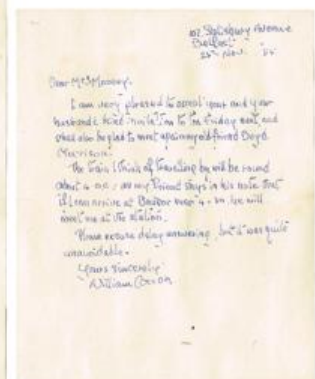 102 Salisbury Avenue
Belfast
25th Nov.
Dear Mrs Mooney.
I am very pleased to accept your and your
husband's kind invitation to tea Friday next, and
shall also be glad to meet again my old friend Boyd
Morrison.
The train I think of travelling by will be round
about 4 o.c., as my friend says in his note that
if I can arrive at Bangor 4- he will
meet me at the station.
Please excuse delay answering, but it was quite
unavoidable.
Yours sincerely
William Conor